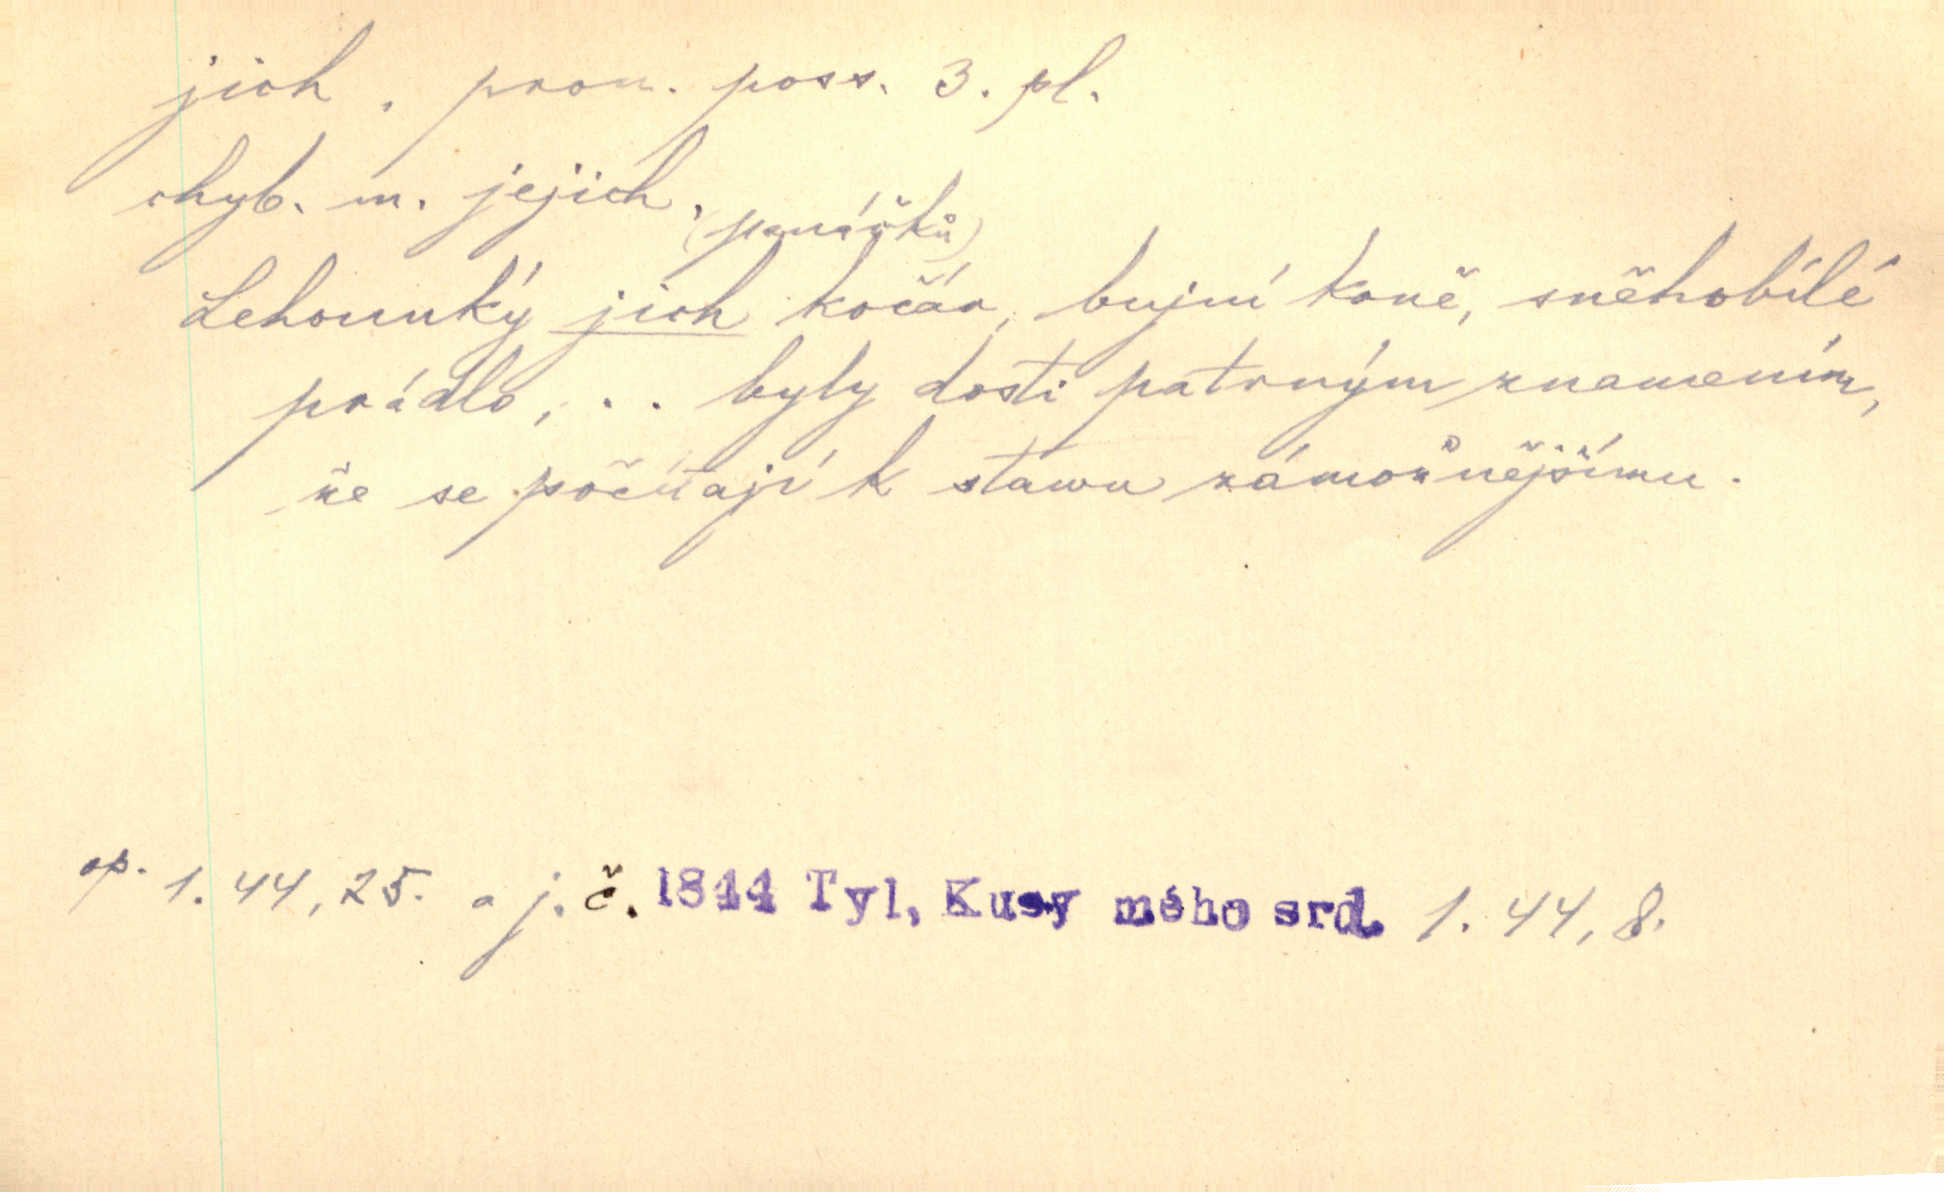 jich, pron. poss. 3. pl.
chyb. m. jejich.
(panáčků)
Lehounký jich kočár, bujní koně, sněhobílé
prádlo, . . . byly dosti patrným znamením,
že se počítají k stavu zámožnějšímu.
op. 1.44, 25. a j. č. 1844 Tyl, Kusy mého srd. 1.44, 8.